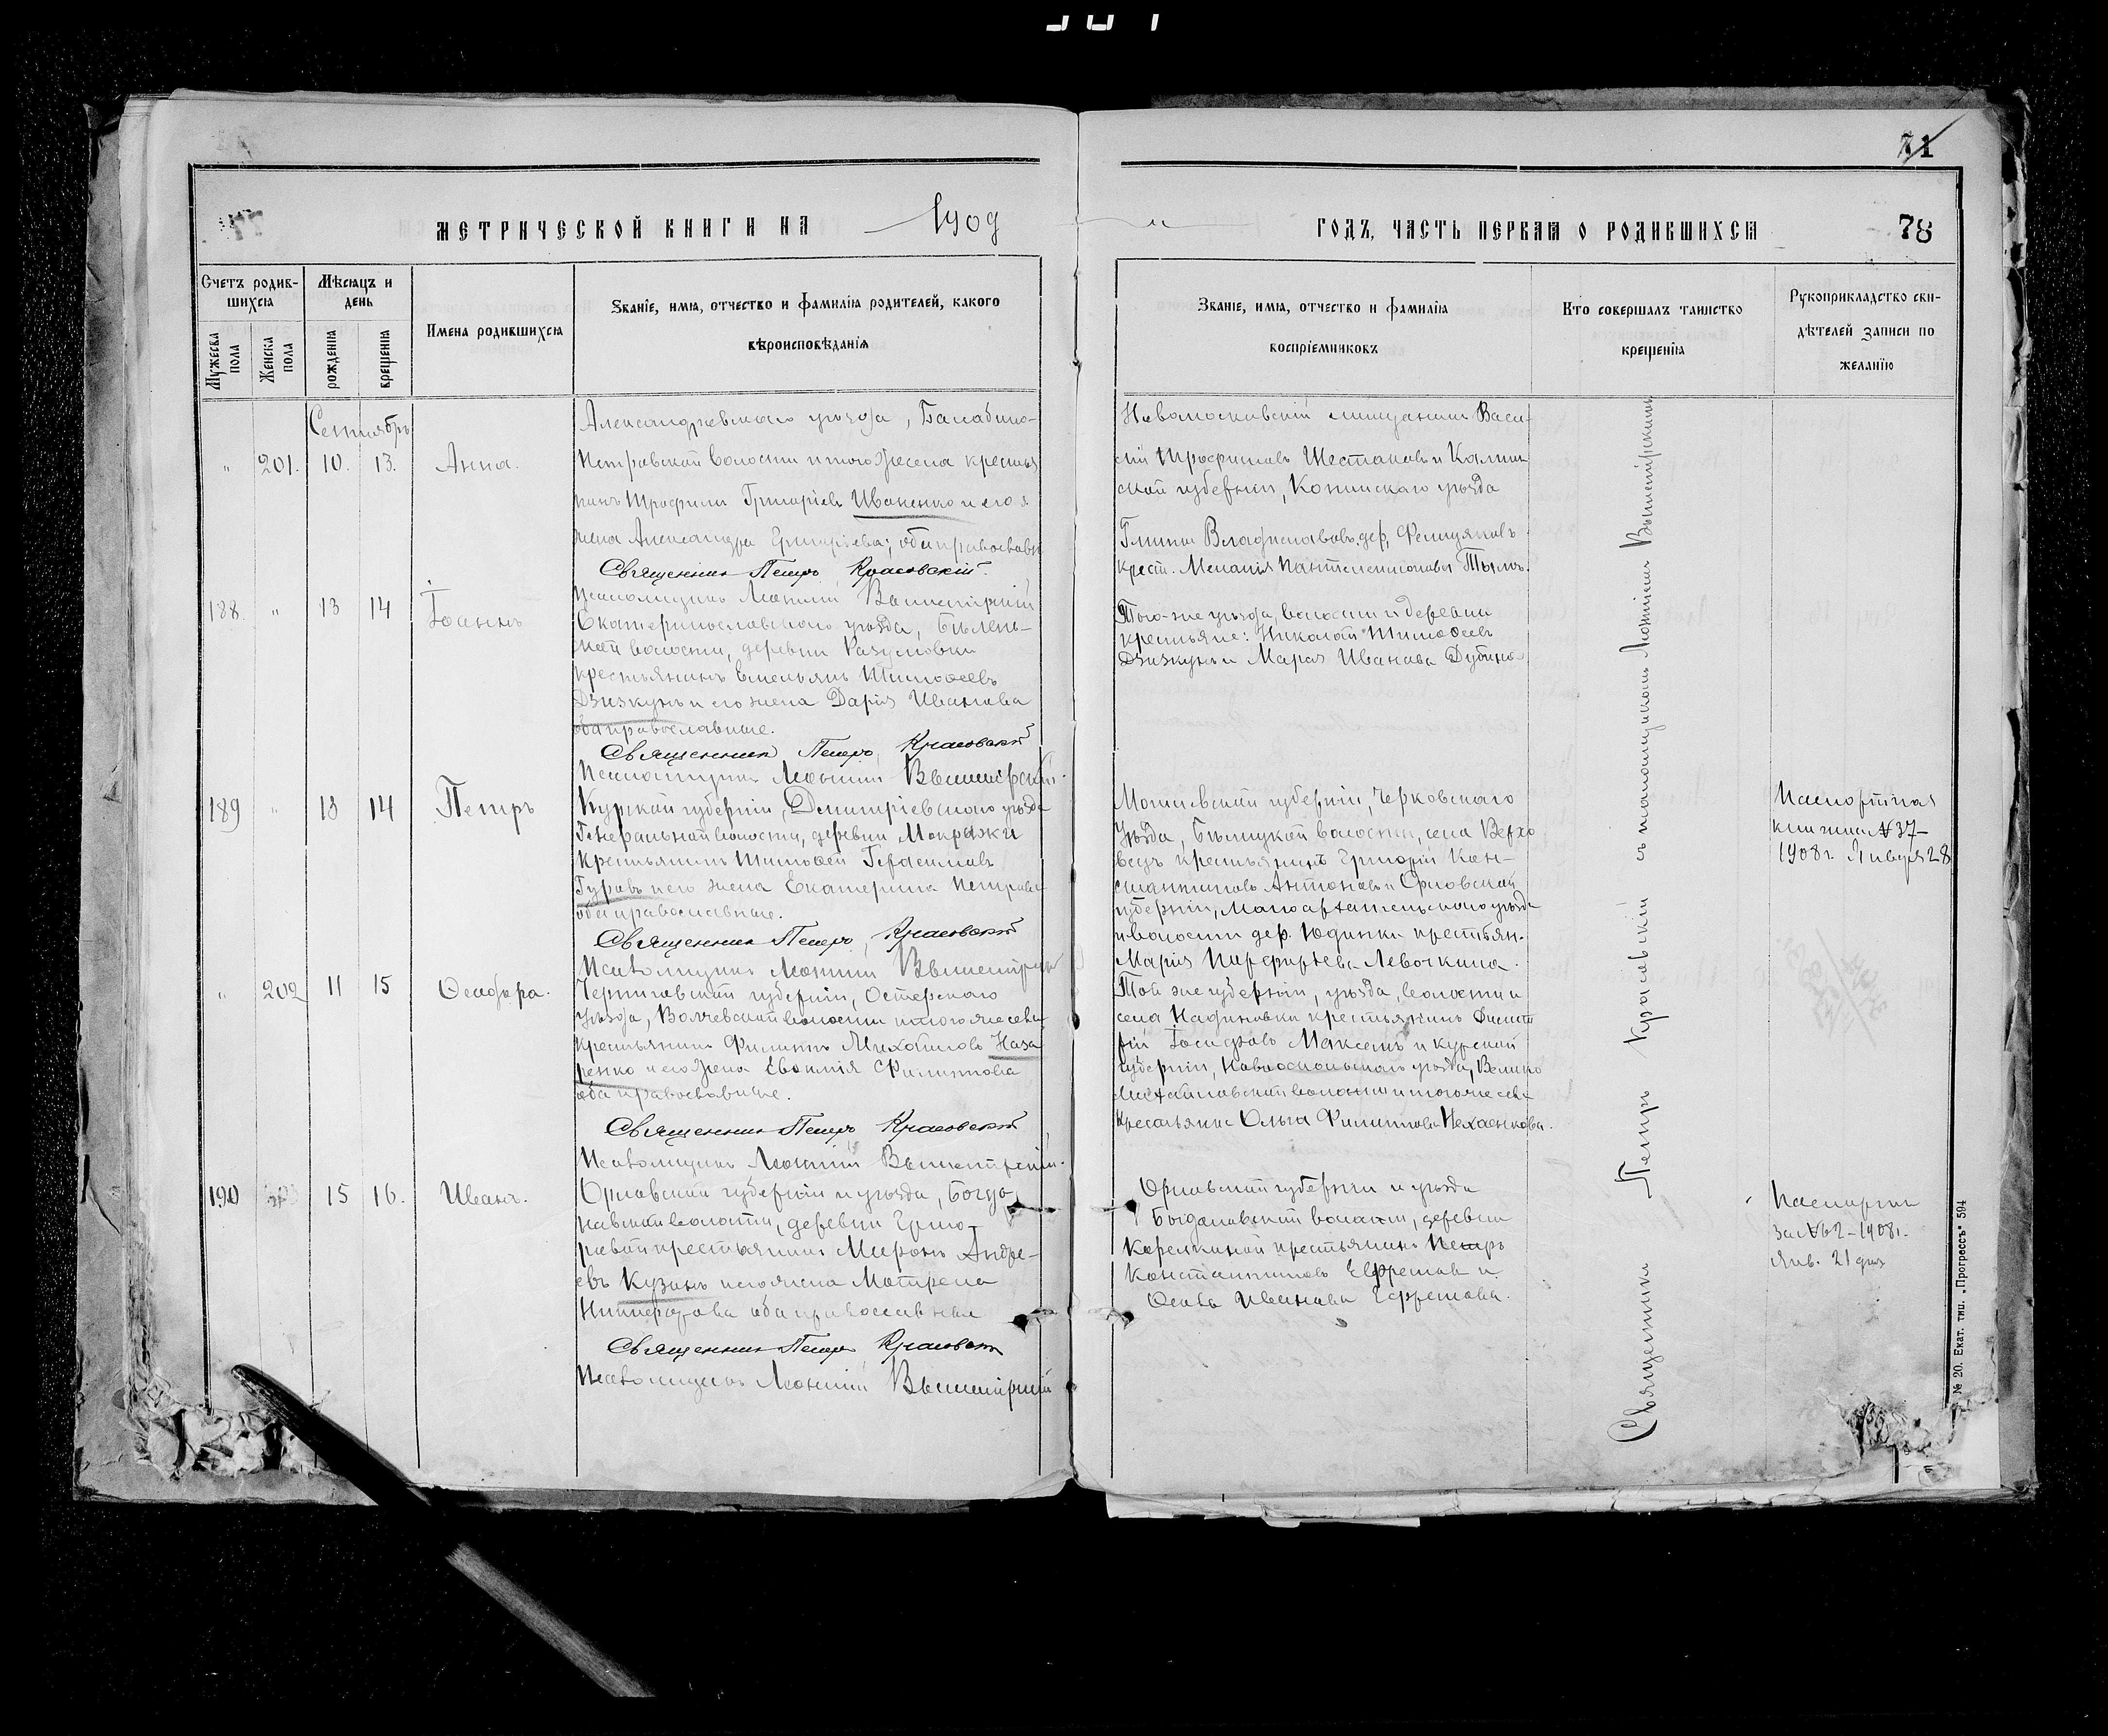 71
МЕТРИЧЕСКОЙ КНИГИ НА 1909
ГОДЪ, ЧАСТЬ ПЕРВАЯ О РОДИВШИХСЯ 78
Счетъ родившихся
Мужеска пола
Женска пола
Мѣсяцъ и день
рожденія
крещенія
Имена родившихся
Званіе, имя, отчество и фамилія родителей, какого
вѣроисповѣданія
Званіе, имя, отчество и фамилія
воспріемниковъ
Кто совершалъ таинство
крещенія
Рукоприкладство сви-
дѣтелей записи по
желанію
Сентябрь
" 201. 10. 13. Анна.
Александровскаго уѣзда, Балабино-
Петровской волости и того же села крестья
нинъ Трофимъ Григоріевъ Иваненко и его
жена Александра Григоріева; оба православн
Священникъ Петръ Красовскій.
Псаломщикъ Вышемірскій
Новомосковскій мѣщанинъ Васи-
лій Трофимовъ Шестаковъ и Калиш-
ской губерніи, Конинскаго уѣзда
Гмины Владиславовъ, дер.
крест. Меланія Пантелеимонова
188. " 13 14 Іоаннъ
Екатеринославскаго уѣзда, Бѣлень-
ской волости, деревни Разумовки
крестьянинъ Емельянъ Тимоѳеевъ
Дзизкунъ и его жена Дарія Иванова
оба православные.
Священникъ Петръ Красовскій
Псаломщикъ Вышемірскій.
Того-же уѣзда, волости и деревни
крестьяне: Николай Тимоѳеевъ
Дзизкунъ и Марія Иванова Дубина
189 " 13 14 Петръ
Курской губерніи, Дмитріевскаго уѣзда
Генеральной волости, деревни Мокрыжи
крестьянинъ Тимоѳей Герасимовъ
Гуровъ и его жена Екатерина Петрова
оба православные.
Священникъ Петръ Красовскій
Псаломщикъ Вышемірскій
Могилевской губерніи, Черковскаго
Уѣзда, волости, села Верхо
крестьянинъ Григорій Кон-
стантиновъ Антоновъ и Орловской
губерніи, Малоархангельскаго уѣзда
и волости дер. Юдинки крестьян.
Марія Парфирьева Левочкина.
Паспортная
книжка № 37-
1908 г. Января 28
" 202 11 15 Ѳеодора.
Черниговской губерніи, Остерскаго
уѣзда, волости и того же села
крестьянинъ Филиппъ Михайловъ Наза
ренко и его жена Евѳимія Филиппова
оба православные.
Священникъ Петръ Красовскій
Псаломщикъ Вышемірскій.
Той же губерніи, уѣзда, волости и
села крестьянинъ Димит
рій Іосифовъ Максимъ и Курской
губерніи, Новооскольскаго уѣзда, Велико
Михайловской волости и того же села
крестьянка Ольга Филиппова
190 15 16. Иванъ.
Орловской губерніи и уѣзда, Богда
новской волости, деревни
крестьянинъ Миронъ Андре-
евъ Кузинъ и его жена Матрена
Никифорова оба православные
Священникъ Петръ Красовскій
Псаломщикъ Вышемірскій
Орловской губерніи и уѣзда
Богдановской волости, деревни
крестьянинъ Петръ
Константиновъ Ефремовъ и
Иванова Ефремова.
Паспортъ
за № 62-1908 г.
Янв. 21 дня
Священникъ Петръ Красовскій съ псаломщикомъ Вышемірскимъ
№ 20. Екат. тип. „Прогрессъ" 594